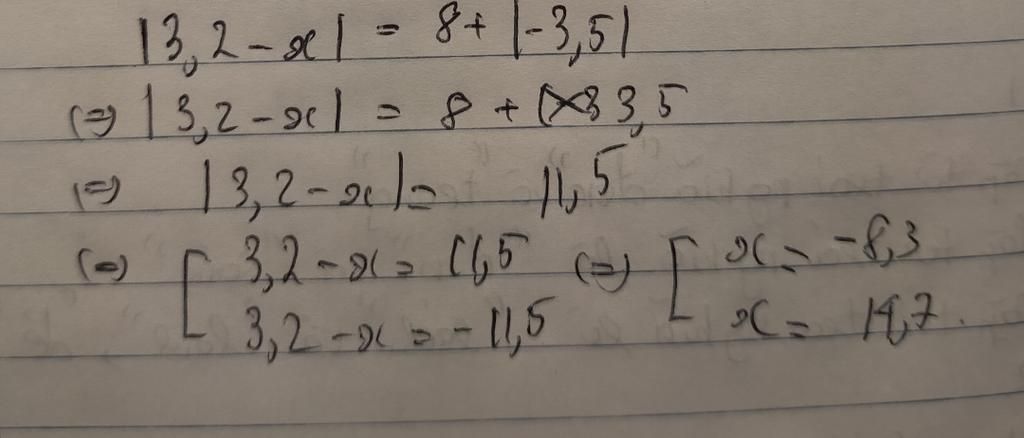 |3,2 - x| = 8 + |-3,5|
(=) |3,2 - x| = 8 + 3,5
(=) |3,2 - x| = 11,5
(=) [ 3,2 - x = 11,5 (=) [ x = -8,3
3,2 - x = -11,5 x = 14,7.